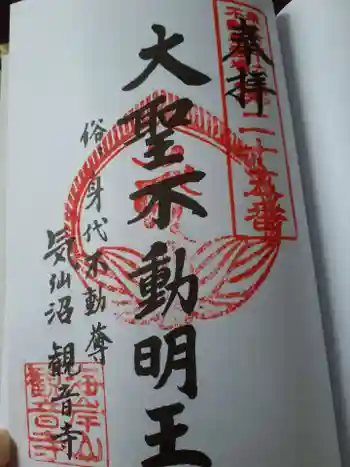 奉拝
二十五番
大聖不動明王
俗、身代不動尊
気仙沼 観音寺
海岸山
観音寺